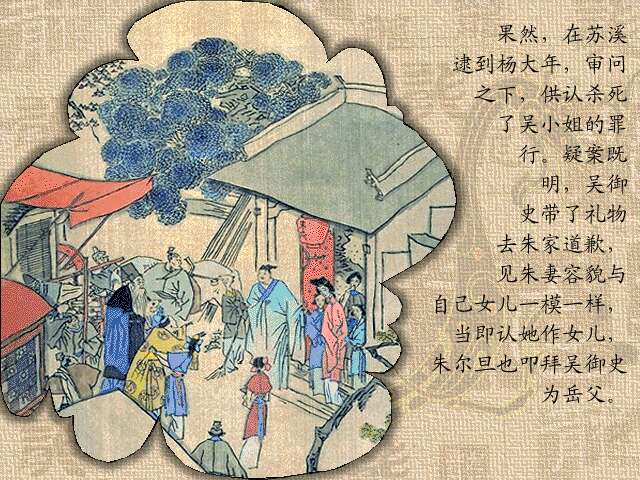 果然，在苏溪
逮到杨大年，审问
之下，供认杀死
了吴小姐的罪
行。疑案既
明，吴御
史带了礼物
去朱家道歉，
见朱妻容貌与
自己女儿一模一样，
当即认她作女儿，
朱尔旦也叩拜吴御史
为岳父。